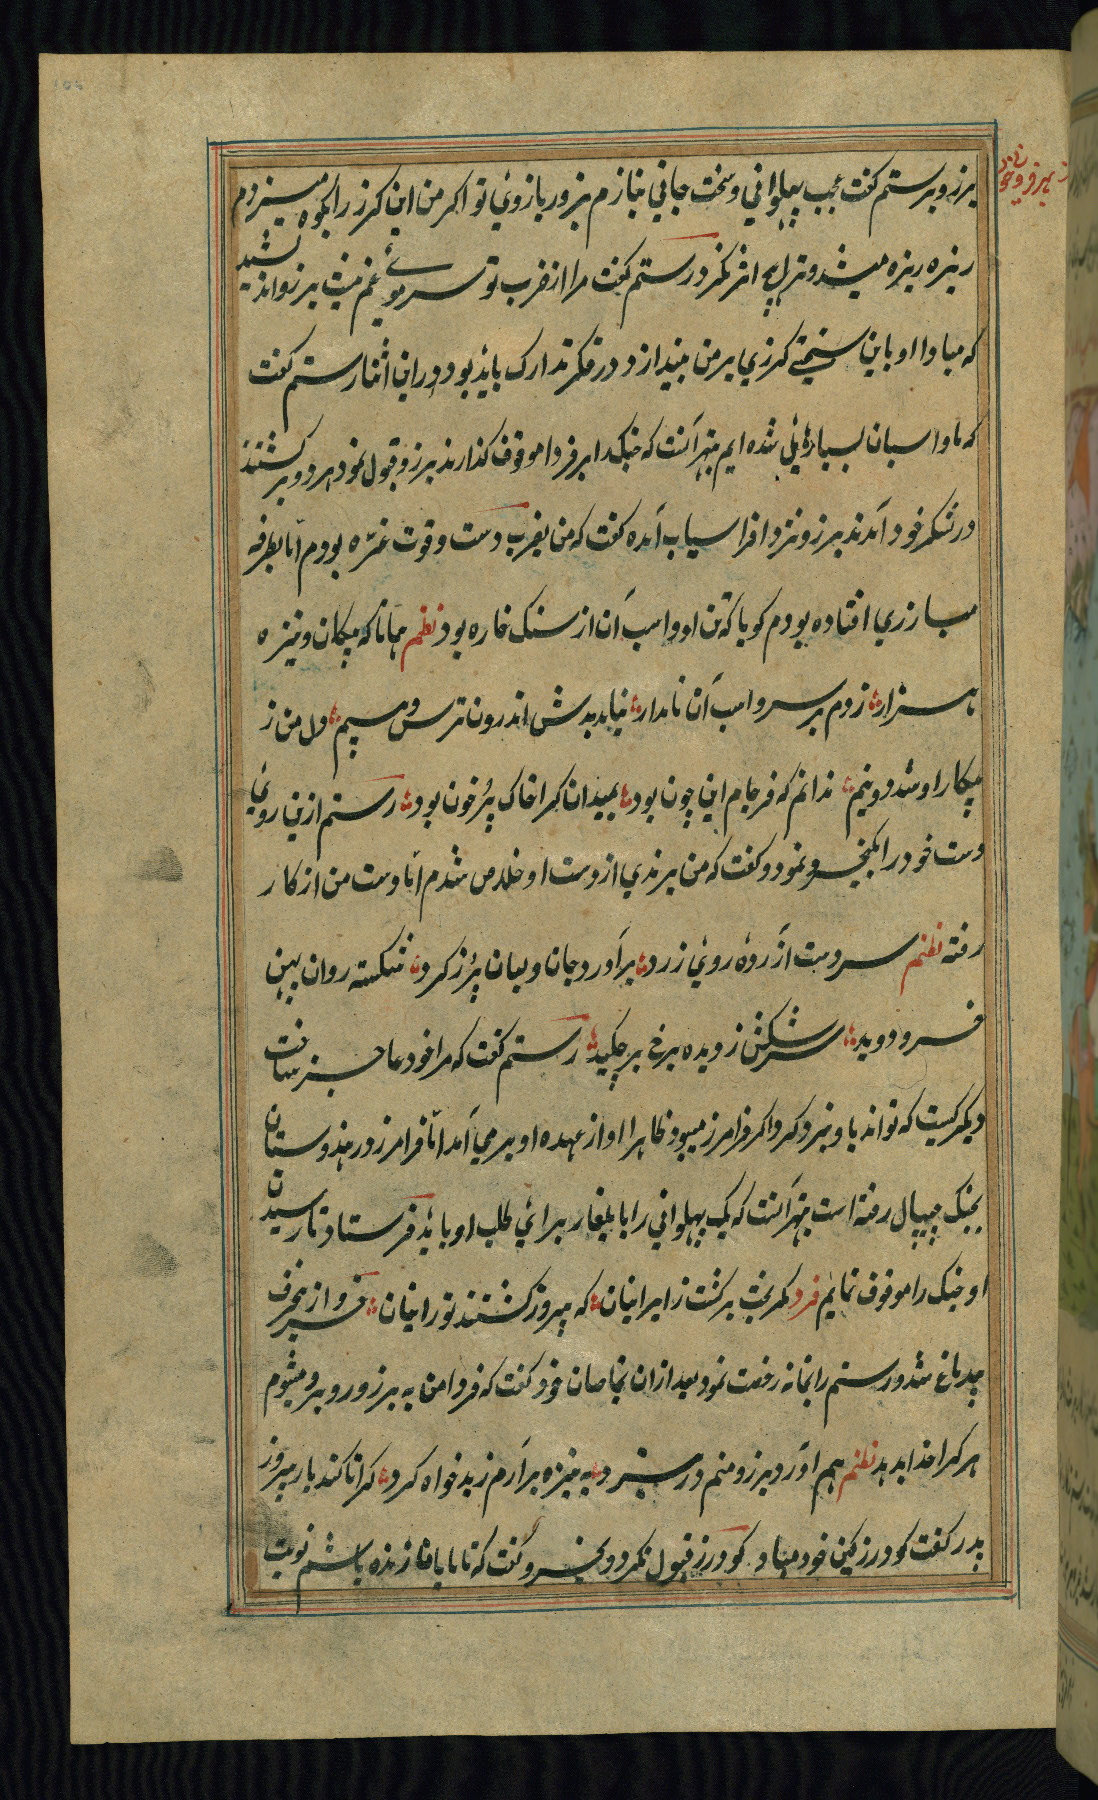 برزو برستم کفت عجب پهلوانی و سخت جانی بنازم بزور بازوئی تو اکر من این کرز را بکوه میزدم
ریزه ریزه میشد و ترا اثر نکرد رستم کفت مرا از ضرب تو سر موئی غم نیست برزو اندیشید
که مبادا او باین سختی کرزی بر من بیندازد در فکر تدارک باید بود دران اثنا رستم کفت
که ما و اسبان بسیار شده ایم بهتر آنست که جنک را بر فردا موقوف کذارند برزو قبول نمود هر دو بر کشتند
در لشکر خود آمدند برزو نزد افراسیاب آمده کفت که من بضرب دست و قوت غرّه بودم امّا بطرفه
مبارزی افتاده بودم کویا که تن او و اسب آن از سنک خاره بود نظم همانا که پیکان و نیزه
هزار زدم بر سر و اسب آن نامدار نیامد بدش اندرون ترس و بیم دل من ز
پیکار او شد دو نیم ندانم که فرجام این چون بود بمیدان کرا خاک پُر خون بود رستم ازین روی
دست خود را بکیخسرو نمود و کفت که من برندی از دست او خلاص شدم امّا دست من از کار
رفته نظم سر دست آزرده روئی زرد بر آورد جان و لبان پر ز کرد شکسته روان پهن
فرو دوید سرشکش ز دیده برخ بر چکید رستم کفت که مرا خود عاجز ساخت
دیکر کیست که تواند با او نبرد کرد اکر فرامرز میبود ظاهرا او از عهده او بر می آمد امّا فرامرز در هندوستان
بجنک جیپال رفته است بهتر آنست که یک پهلوانی را بایلغار برائی طلب او باید فرستاد تا رسیدن
او جنک را موقوف نمایم فرد مکر بخت بر کشت ز ایرانیان که پیروز کشتند تورانیان خسرو ازین حرف
بیدماغ شد و رستم را بخانه رخصت نمود بعد ازان بخاصان خود کفت که فردا من به برزو روبرو میشوم
هر کرا خدا بدهد نظم هم آورد برزو منم در نبرد به نیزه بر آرم ز بدخواه کرد کرا تا کند یار پیروز
پدر کفت کودرز کین خود مباد کودرز قبول نکرد و بخسرو کفت که تا ما یا فا زنده باشم نوبت